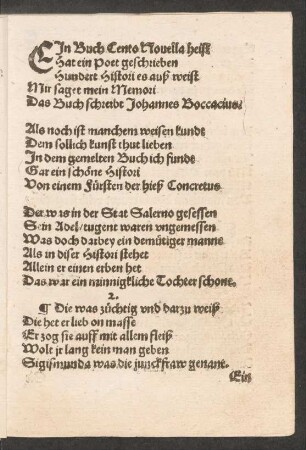 EIn Buch Cento Nouella heißt
Hat ein Poet geschrieben
Hundert Histori es auß weist
Mir saget mein Memori
Das Buch schreibt Johannes Boccacius.
Als noch ist manchem weisen kundt
Dem sollich kunst thut lieben
In dem gemelten Buch ich fundt
Gar ein schöne Histori
Von einem Fürsten der hieß Concretus
Der was in der Stat Salerno gesessen
Sein Adel/tugent waren vngemessen
Was doch darbey ein demütiger manne
Als in diser Histori stehet
Allein er einen erben het
Das war ein minnigkliche Tochter schone.
2.
¶ Die was züchtig vnd darzu weiß
Die het er lieb on masse
Er zog sie auff mit allem fleiß
Wolt jr lang kein man geben
Sigismunda was die junckfraw genane.
Ein